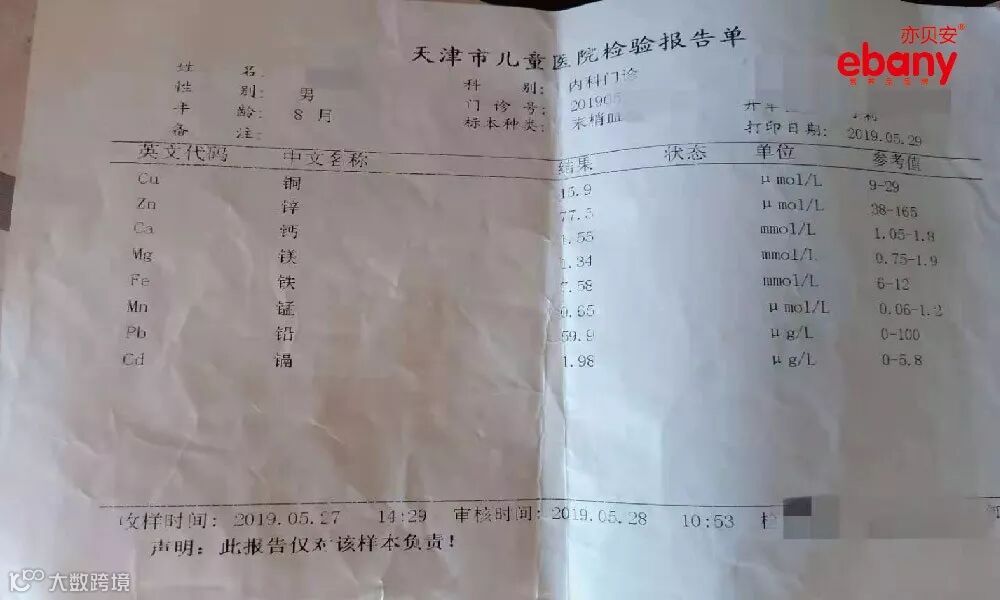 亦贝安®
ebany
天津市儿童医院检验报告单
姓 名:
科 别: 内科门诊
性 别: 男
门诊号: 201905
年 龄: 8 月
标本种类: 末梢血
打印日期: 2019.05.29
备 注:
英文代码 中文名称 结果 状态 单位 参考值
Cu 铜 15.9 μmol/L 9-29
Zn 锌 77.5 μmol/L 38-165
Ca 钙 1.55 mmol/L 1.05-1.8
Mg 镁 1.34 mmol/L 0.75-1.9
Fe 铁 7.58 mmol/L 6-12
Mn 锰 0.65 μmol/L 0.06-1.2
Pb 铅 59.9 μg/L 0-100
Cd 镉 1.98 μg/L 0-5.8
收样时间: 2019.05.27 14:29 审核时间: 2019.05.28 10:53 检
声明: 此报告仅对该样本负责!
大数跨境